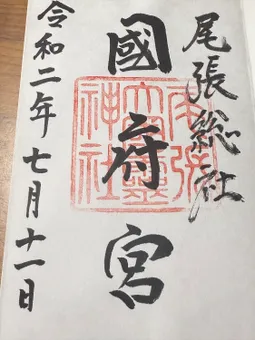 尾張総社
國府宮
令和二年七月十一日
尾張大國霊神社